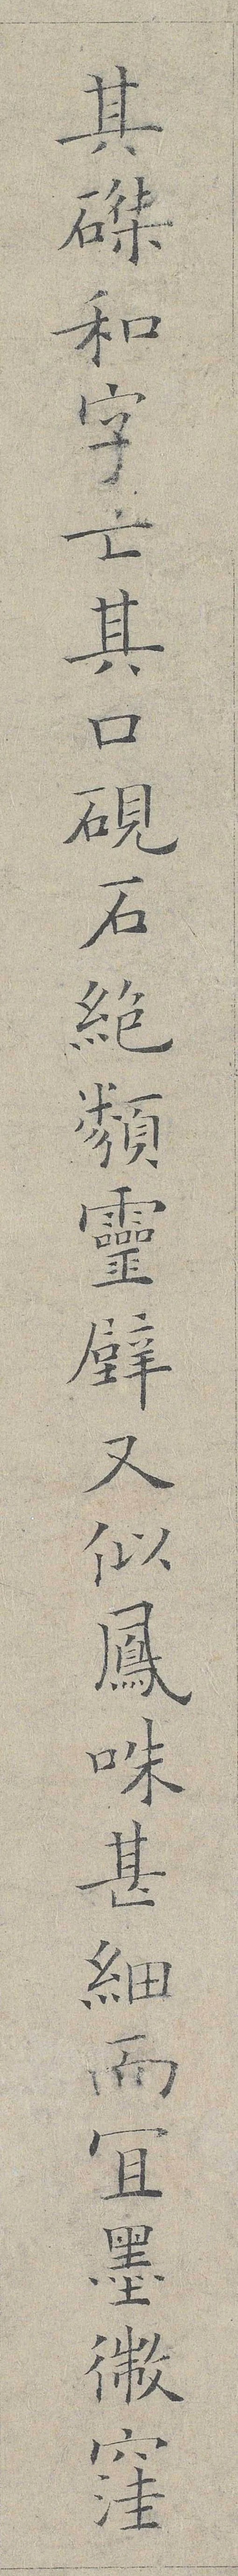 其磔和字亡其口硯石絶類靈壁又似鳳咮甚細而冝墨微窪